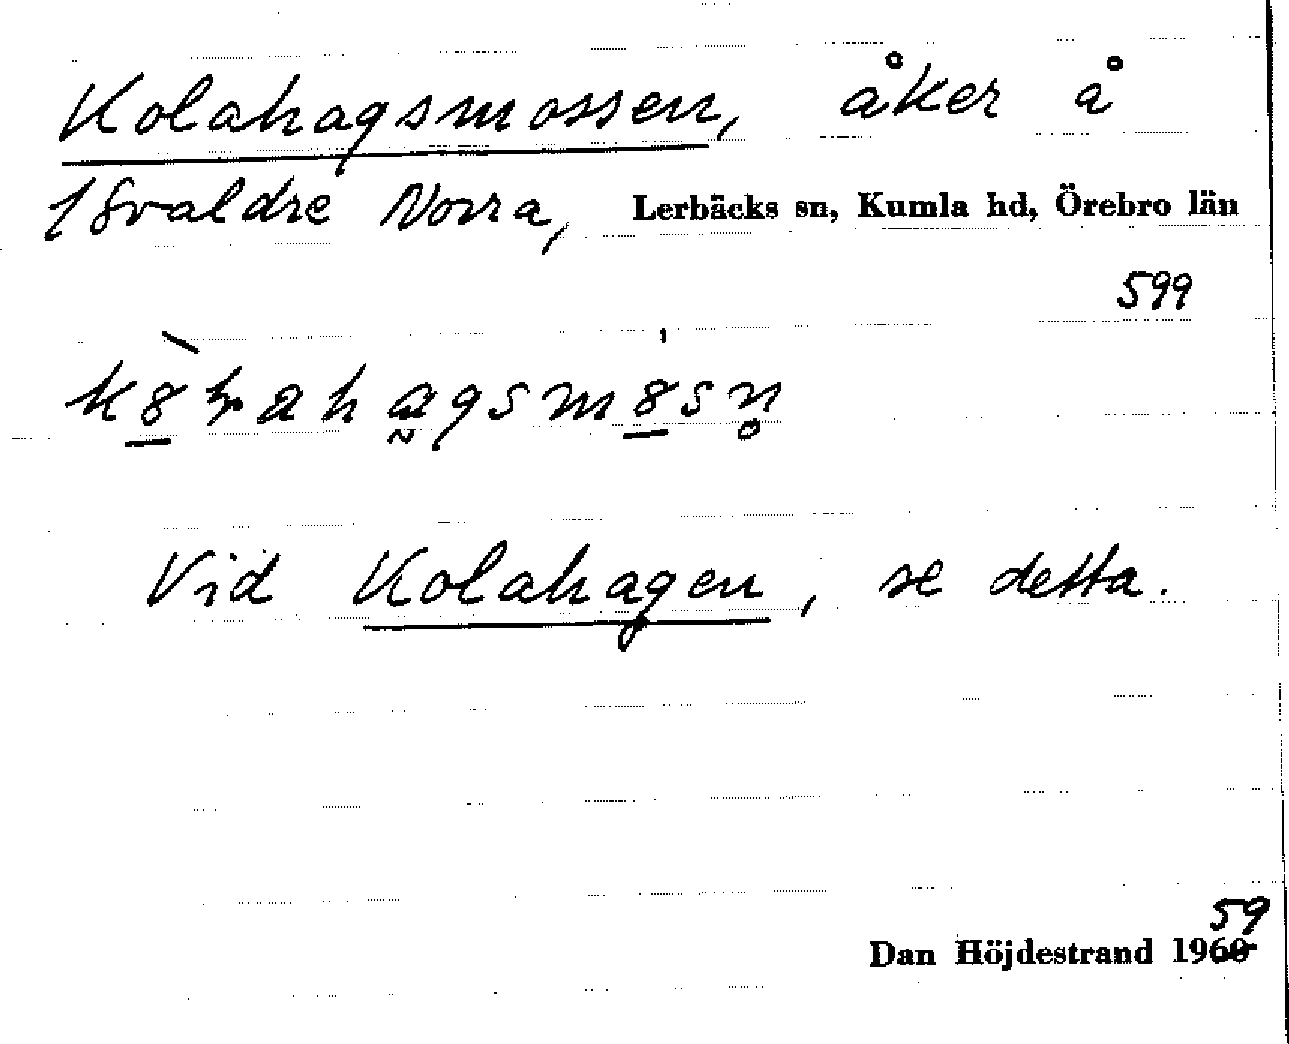 Kolahagsmossen, åker å
18valdre Norra, Lerbäcks sn, Kumla hd, Örebro län
599
Vid Kolahagen, se detta.
59
Dan Höjdestrand 1960